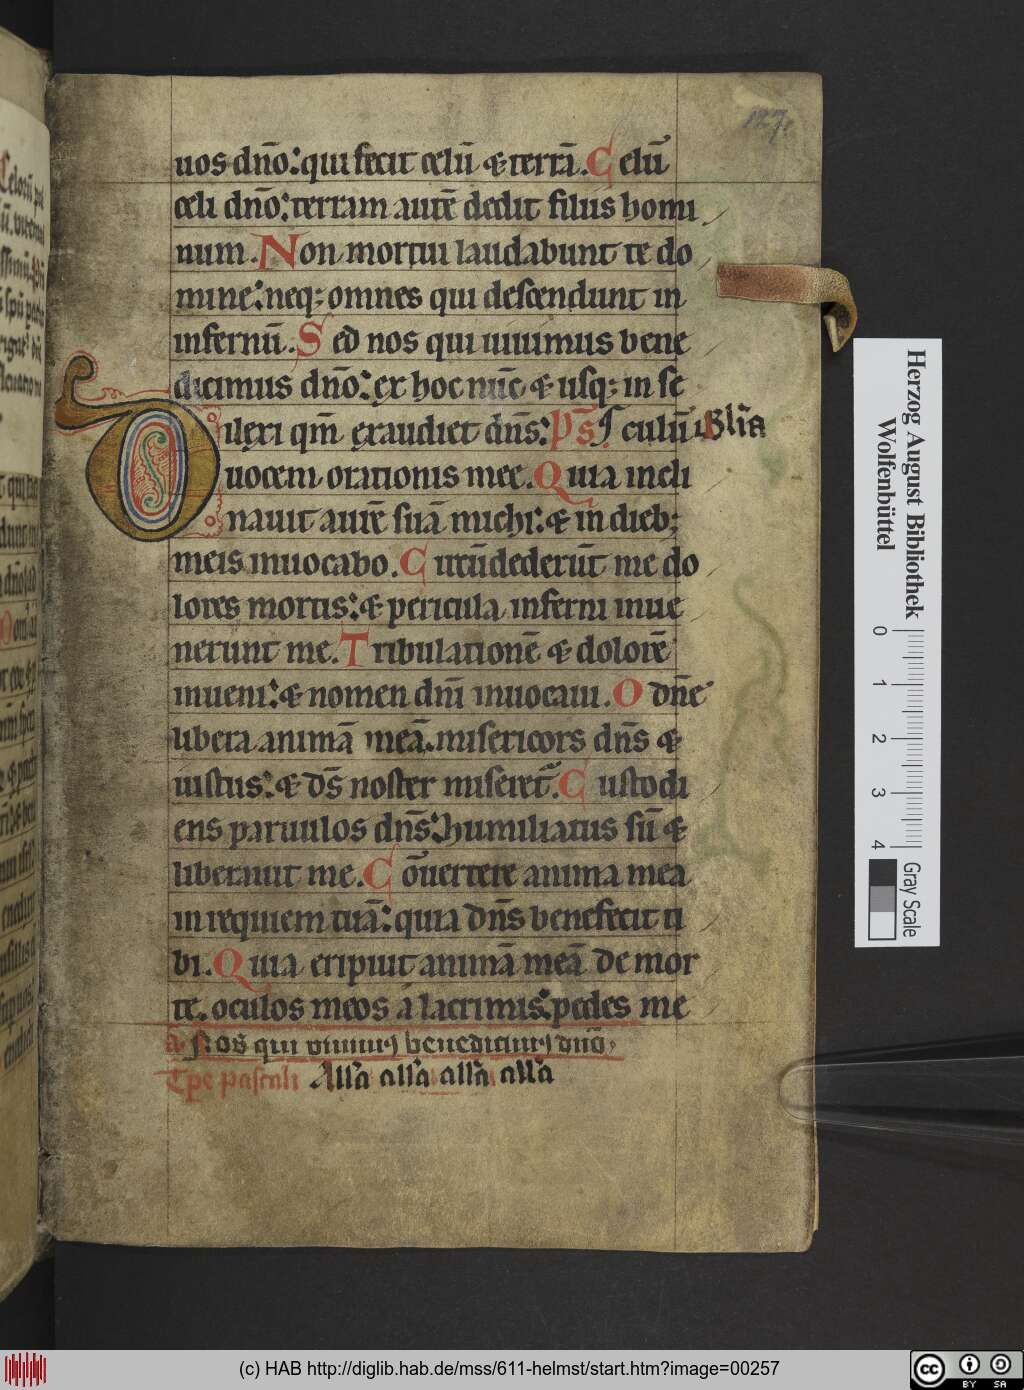 127
uos dño: qui fecit celū & terrā. Celū
celi dño: terram autē dedit filiis homi
num. Non mortui laudabunt te do
mine: neq; omnes qui descendunt in
infernū. Sed nos qui uiuimus bene
dicimus dño: ex hoc nūc & usq; in se
culū Glīa
Dilexi qm̄ exaudiet dñs: Ps̄
uocem orationis mee. Quia incli
nauit aurē suā michi: & in dieb;
meis inuocabo. Circūdederūt me do
lores mortis: & pericula inferni inue
nerunt me. Tribulationē & dolorē
inueni: & nomen dñi inuocaui. O dñe
libera animā meā. misericors dñs &
iustus: & ds̄ noster miseret᷑. Custodi
ens paruulos dñs: humiliatus sū &
liberauit me. Cōuertere anima mea
in requiem tuā: quia dñs benefecit ti
bi. Quia eripuit animā meā de mor
te. oculos meos a lacrimis: pedes me
a. Nos qui viuim⁹ benedicim⁹ dño.
Tpe pascali Alla alla alla alla
Herzog August Bibliothek
Wolfenbüttel
0 1 2 3 4
Gray Scale
(c) HAB http://diglib.hab.de/mss/611-helmst/start.htm?image=00257
cc BY SA